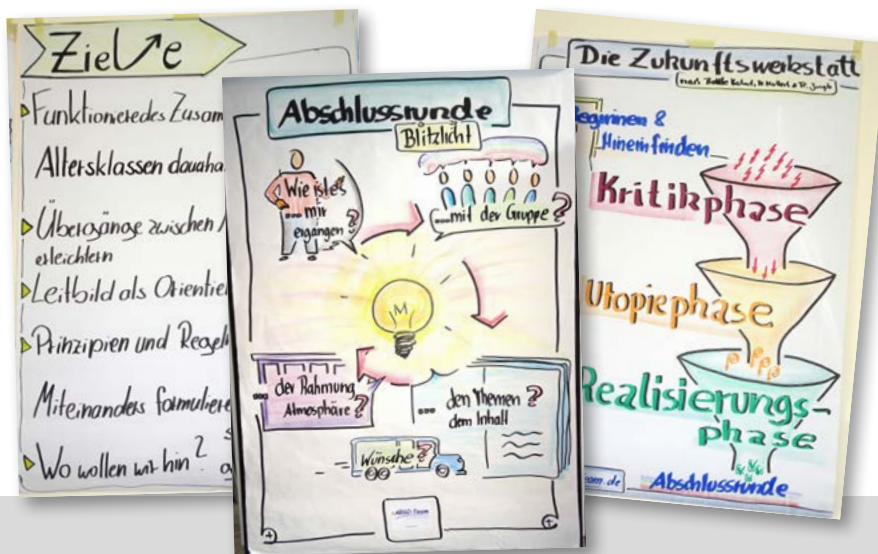 Ziele
Funktionieredes Zusam
Altersklassen dauaha
Übergänge zwischen
erleichtern
Leitbild als Orientie
Prinzipien und Regeln
Miteinanders formuliere
Wo wollen wir hin?
Abschlussrunde
Blitzlicht
Wie ist es
... mir
ergangen?
...mit der Gruppe?
... der Rahmung
Atmosphäre?
... den Themen?
dem Inhalt
Wünsche?
Die Zukunftswerkstatt
Beginnen &
Hineinfinden
Kritikphase
Utopiephase
Realisierungs-
phase
Abschlussrunde